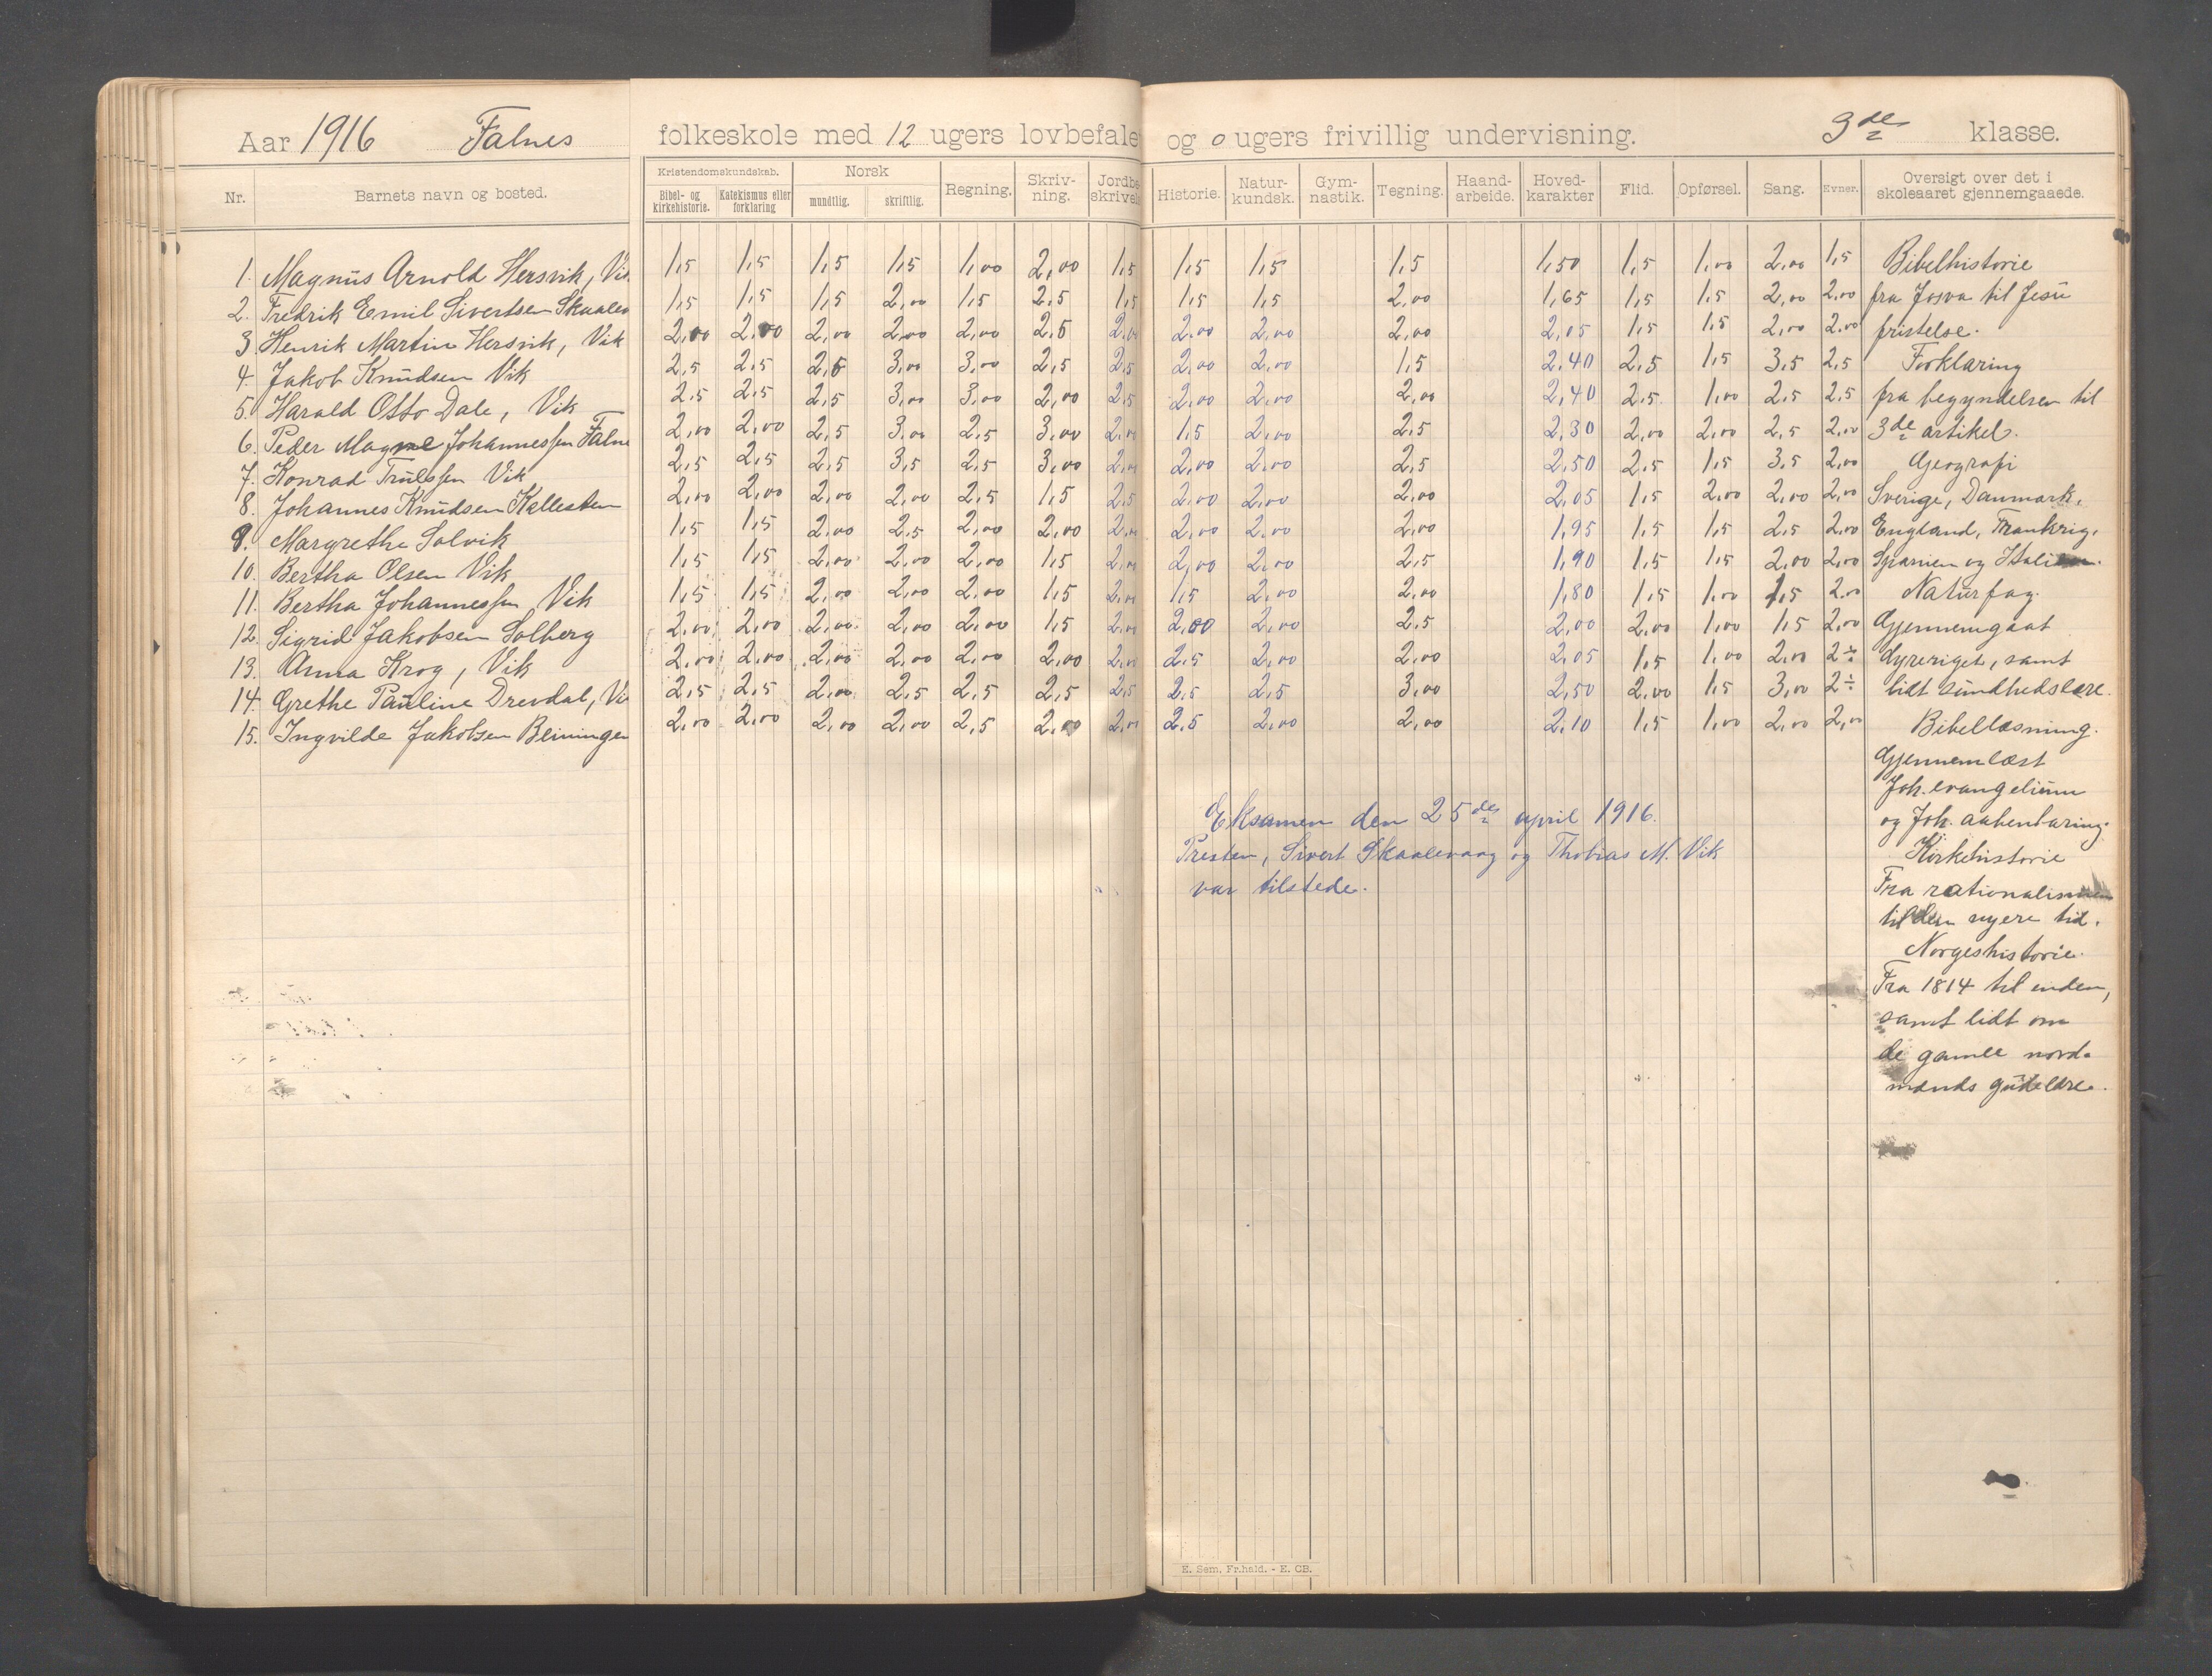 Aar 1916 Falnes folkeskole med 12 ugers lovbefale og 0 ugers frivillig undervisning. 3de klasse.
Nr. Barnets navn og bosted. Kristendomskundskab. Bibel- og kirkehistorie. Katekismus eller forklaring Norsk mundtlig. skriftlig. Regning. Skriv-ning. Jordbe-skrivels Historie. Natur-kundsk. Gym-nastik. Tegning. Haand-arbeide. Hoved-karakter Flid. Opførsel. Sang. Evner. Oversigt over det i skoleaaret gjennemgaaede.
1. Magnus Arnold Hersvik, Vi 1,5 1,5 1,5 1,5 1,00 2,00 1,5 1,5 1,5 1,5 1,50 1,5 1,00 2,00 1,5 Bibelhistorie
2. Fredrik Emil Sivertsen Skaalev 1,5 1,5 1,5 2,00 1,5 2,5 1,5 1,5 1,5 2,00 1,65 1,5 1,5 2,00 2,00 fra Josva til Jesu
3. Henrik Martin Hersvik, Vik 2,00 2,00 2,00 2,00 2,00 2,5 2,00 2,00 2,00 2,00 2,05 1,5 1,5 2,00 2,00 fristelse.
4. Jakob Knudsen Vik 2,5 2,5 2,5 3,00 3,00 2,5 2,5 2,00 2,00 1,5 2,40 2,5 1,5 3,5 2,5 Forklaring
5. Harald Otto Dale, Vik 2,5 2,5 2,5 3,00 3,00 2,00 2,5 2,00 2,00 2,00 2,40 2,5 1,00 2,5 2,5 fra begyndelsen til
6. Peder Magne Johannessen Falne 2,00 2,00 2,5 3,00 2,5 3,00 2,00 1,5 2,00 2,5 2,30 2,00 2,00 2,5 2,00 3de artikel.
7. Konrad Trulssen Vik 2,5 2,5 2,5 3,5 2,5 3,00 2,00 2,00 2,00 2,5 2,50 2,5 1,5 3,5 2,00 Geografi
8. Johannes Knudsen Kallesten 2,00 2,00 2,00 2,00 2,5 1,5 2,5 2,00 2,00 2,00 2,05 1,5 2,00 2,00 2,00 Sverige, Danmark,
9. Margrethe Solvik 1,5 1,5 2,00 2,5 2,00 2,00 2,00 2,00 2,00 2,00 1,95 1,5 1,5 2,5 2,00 England, Frankrig,
10. Bertha Olsen Vik 1,5 1,5 2,00 2,00 2,00 1,5 2,00 2,00 2,00 2,5 1,90 1,5 1,5 2,00 2,00 Spanien og Italien.
11. Bertha Johannessen Vik 1,5 1,5 2,00 2,00 2,00 1,5 2,00 1,5 2,00 2,00 1,80 1,5 1,00 1,5 2,00 Naturfag.
12. Sigrid Jakobsen Solberg 2,00 2,00 2,00 2,00 2,00 1,5 2,00 2,00 2,00 2,5 2,00 2,00 1,00 1,5 2,00 Gjennemgaat
13. Anna Krog, Vik 2,00 2,00 2,00 2,00 2,00 2,00 2,00 2,5 2,00 2,00 2,05 1,5 1,00 2,00 2÷ dyreriget, samt
14. Grethe Pauline Drevdal, Vi 2,5 2,5 2,00 2,5 2,5 2,5 2,5 2,5 2,5 3,00 2,50 2,00 1,5 3,00 2÷ lidt sundhedslære.
15. Ingvilde Jakobsen Beiningen 2,00 2,00 2,00 2,00 2,5 2,00 2,00 2,5 2,00 2,00 2,10 1,5 1,00 2,00 2,00 Bibellæsning.
Gjennemlæst
Joh. evangelium
og Joh. aabenbaring.
Kirkehistorie
Fra rationalismen
til den nyere tid.
Norgeshistorie.
Fra 1814 til enden,
samt lidt om
de gamle nord-
mænds gudelære.
Eksamen den 25de april 1916.
Presten, Sivert Skaalevaag og Thobias M. Vik
var tilstede.
E. Sem, Fr.hald. - E. CB.